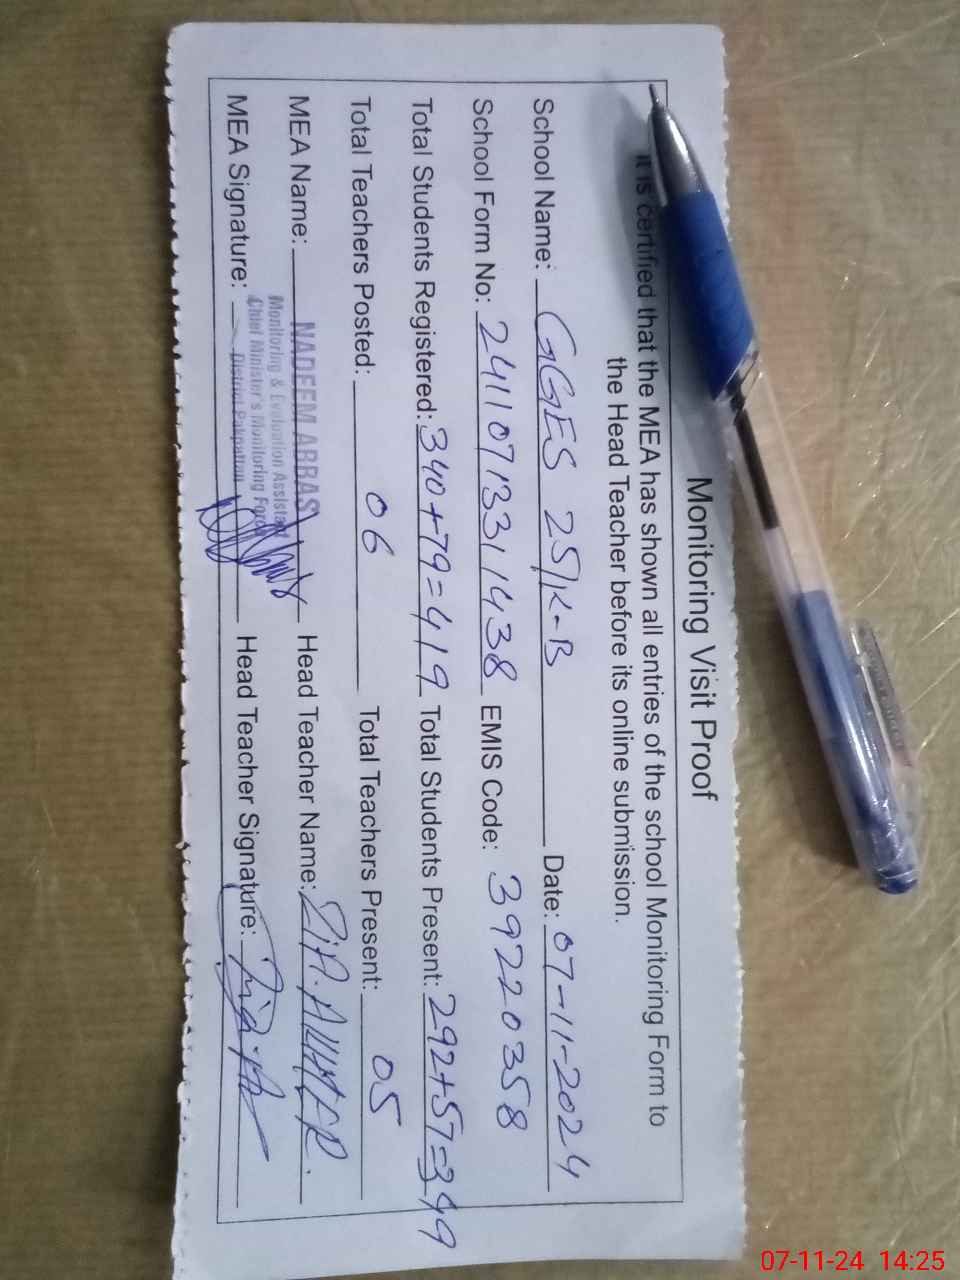 Monitoring Visit Proof
It is certified that the MEA has shown all entries of the school Monitoring Form to
the Head Teacher before its online submission.
School Name: GGES 25/K-B Date: 07-11-2024
School Form No: 2411071331438 EMIS Code: 39220358
Total Students Registered: 340+79=419 Total Students Present: 292+57=349
Total Teachers Posted: 06 Total Teachers Present: 05
MEA Name: NADEEM ABBAS Head Teacher Name: ZIA.AKHTER.
Monitoring & Evaluation Assistant
Chief Minister's Monitoring Force
District Pakpattan
MEA Signature: Head Teacher Signature:
07-11-24 14:25